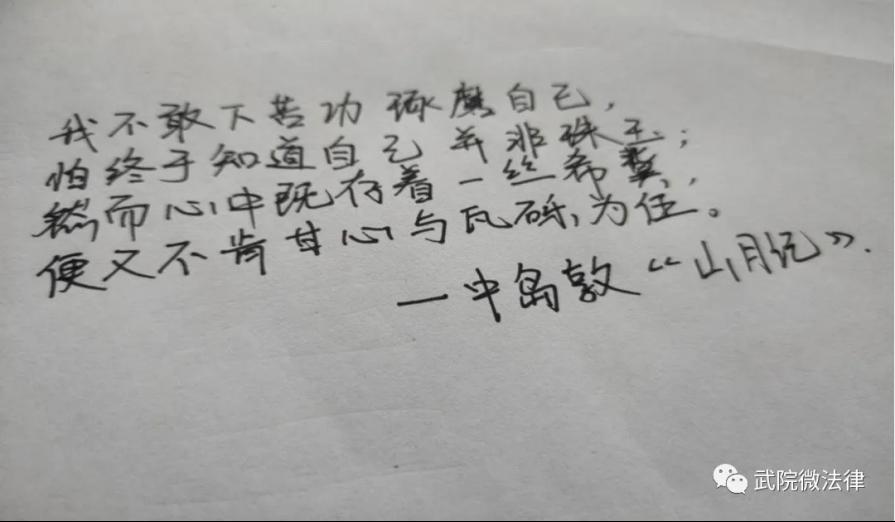 我不敢下苦功琢磨自己，
怕终于知道自己并非珠玉；
然而心中既存着一丝希冀，
便又不肯甘心与瓦砾为伍。
一中岛敦“山月记”.
武院微法律